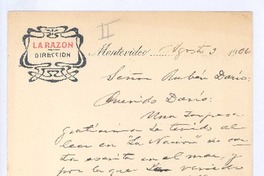 II
LA RAZON
DIRECCIÓN
Montevideo Agosto 3 1906
Señor Rubén Darío,
Querido Darío:
Una sorpresa
gratísima he tenido al
leer en "La Nación" de
escrita en el mar, y
por lo que venido